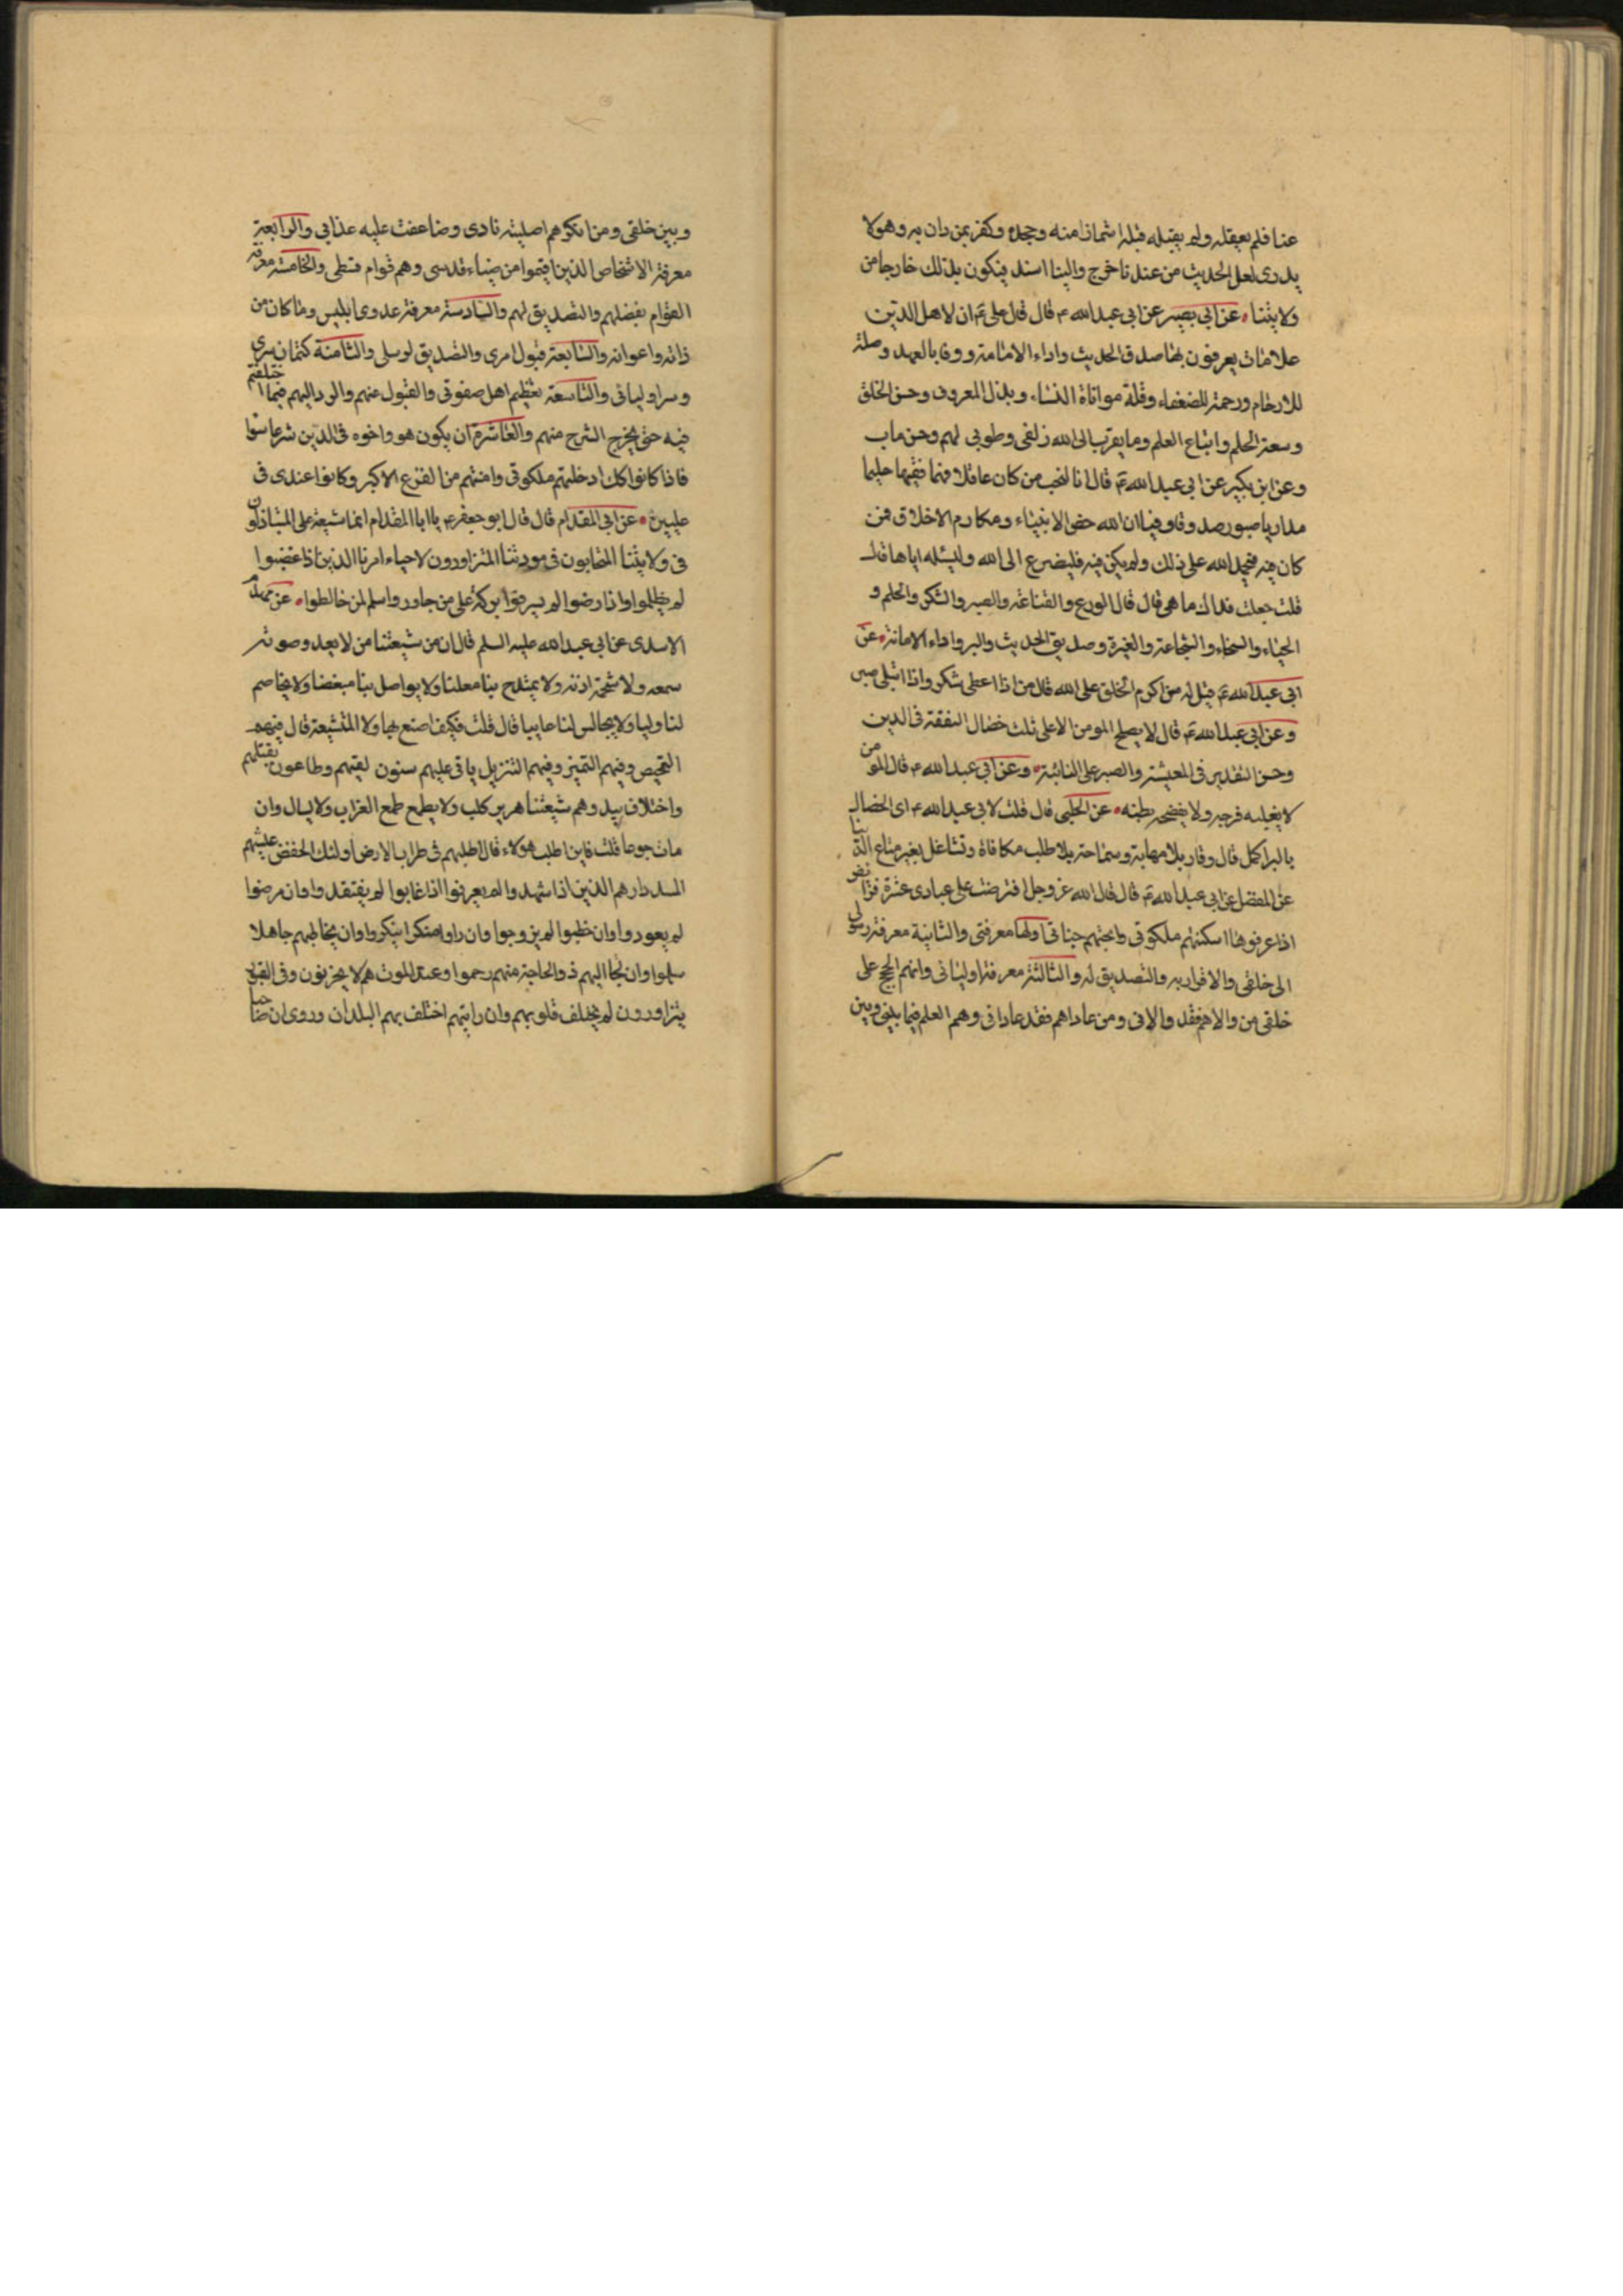 عنا فلم يعقله ولم يقبله قبله اشمازا منه وجحده وكفر بمن دان به وهو لا
يدرى لعل الحديث من عندنا خرج والينا اسند فيكون بذلك خارجا من
ولايتنا • عن ابى بصير عن ابى عبد الله ع قال قال على ع ان لاهل الدين
علامات يعرفون بها صدق الحديث واداء الامانة ووفا بالعهد وصلة
للارحام ورحمة للضعفاء وقلة مواتاة النساء وبذل المعروف وحسن الخلق
وسعة الحلم واتباع العلم وما يقرب الى الله زلفى وطوبى لهم وحسن ماب
وعن ابن بكير عن ابى عبد الله ع قال انا لنحب من كان عاقلا فهما فقيها حليما
مداريا صبورا صدوقا وفيا ان الله خص الانبياء ومكارم الاخلاق فمن
كان فيه فليحمد الله على ذلك ولم يكن فيه فليضرع الى الله وليسئله اياها قال
قلت جعلت فداك ما هى قال قال الورع والقناعة والصبر والشكر والحلم و
الحياء والسخاء والشجاعة والغيرة وصديق الحديث والبر واداء الامانة • عن
ابى عبد الله ع قيل له من اكرم الخلق على الله قال من اذا اعطى شكر واذا ابتلى صبر
وعن ابى عبد الله ع قال لا يصلح المومن الا على ثلث خصال التفقة فى الدين
وحسن التقدير فى المعيشة والصبر على النائبة • وعن ابى عبد الله ع قال المومن
لا يغلبه فرجه ولا يفضحه بطنه • عن الحلبى قال قلت لابى عبد الله ع اى الخصال
بالبر اكمل قال وقار بلا مهابة وسماحة بلا طلب مكافاة وتشاغل بغير متاع الدنيا
عن المفضل عن ابى عبد الله ع قال قال الله عز وجل افترضت على عبادى عشرة فرائض
اذا عرفوها اسكنتهم ملكوتى وابحتهم جناتى اولها معرفتى والثانية معرفة رسولى
الى خلقى والاقرار به والتصديق له والثالثة معرفة اوليائى وانهم الحجج على
خلقى من والاهم فقد والانى ومن عاداهم فقد عادانى وهم العلم فيما بينى وبين
وبين خلقى ومن انكرهم اصليته نارى وضاعفت عليه عذابى والرابعة
معرفة الاشخاص الذين اقيموا من ضياء قدسى وهم قوام قسطى والخامسة معرفة
القوام بفضلهم والتصديق لهم والسادسة معرفة عدوى ابليس وما كان من
ذاته واعوانه والسابعة قبول امرى والتصديق لرسلى والثامنة كتمان سرى
وسر اوليائى والتاسعة تعظيم اهل صفوتى والقبول عنهم والرد اليهم فيما اختلفتم
فيه حتى يخرج الشرح منهم والعاشرة ان يكون هو واخوه فى الدين شرعا سوا
فاذا كانوا كك ادخلتهم ملكوتى وامنتهم من الفزع الاكبر وكانوا عندى فى
عليين • عن ابى المقدام قال قال ابو جعفر ع يا ابا المقدام انما شيعة على المتباذلون
فى ولايتنا المتحابون فى مودتنا المتزاورون لاحياء امرنا الذين اذا غضبوا
لم يظلموا واذا رضوا لم يسرفوا بركة على من جاور واسلم لمن خالطوا • عن مهزم
الاسدى عن ابى عبد الله عليه السلم قال ان من شيعتنا من لا يعد وصوته
سمعه ولا شحمة اذنه ولا يمتدح بنا معلنا ولا يواصل بنا مبغضا ولا يخاصم
لنا وليا ولا يجالس لنا عايبا قال قلت فكيف اصنع بهاولا المتشيعة قال فيهم
التمحيص وفيهم التميز وفيهم التنزيل ياتى عليهم سنون تفنيهم وطاعون يقتلهم
واختلاف يبيدوهم شيعتنا هرير كلب ولا يطمع طمع الغراب ولا يسال وان
مات جوعا قلت فاين اطلب هولاء قال اطلبهم فى طراب الارض اولئك الخفض عيشهم
دارهم الذين اذا شهدوا لم يعرفوا اذا غابوا لم يفتقدوا وان مرضوا
لم يعودوا وان خطبوا لم يزوجوا وان راوا منكرا ينكروا وان يخاطبهم جاهلا
سلموا وان لجا اليهم ذو الحاجة منهم رحموا وعند الموت هم لا يحزنون وفى القبور
يتزاورون لم يختلف قلوبهم وان رايتهم اختلف بهم البلدان وروى ان